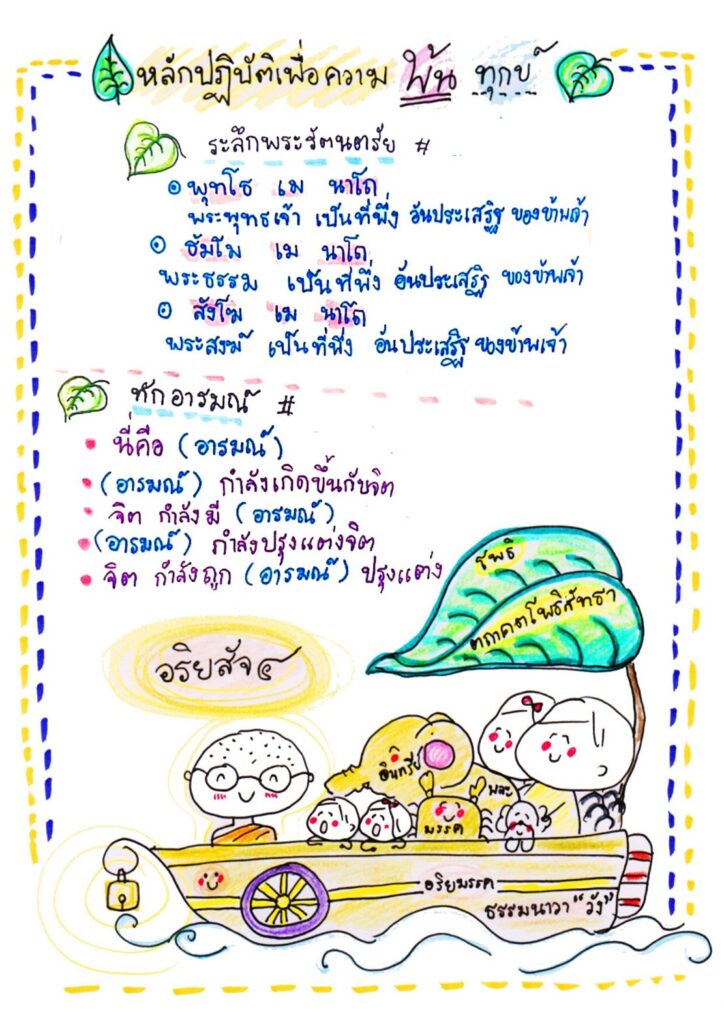 หลักปฏิบัติเพื่อความ พ้น ทุกข์
ระลึกพระรัตนตรัย #
พุทโธ เม นาโถ
พระพุทธเจ้า เป็นที่พึ่ง อันประเสริฐ ของข้าพเจ้า
ธัมโม เม นาโถ
พระธรรม เป็นที่พึ่ง อันประเสริฐ ของข้าพเจ้า
สังโฆ เม นาโถ
พระสงฆ์ เป็นที่พึ่ง อันประเสริฐ ของข้าพเจ้า
ทักอารมณ์ #
นี่คือ (อารมณ์)
(อารมณ์) กำลังเกิดขึ้นกับจิต
จิต กำลังมี (อารมณ์)
(อารมณ์) กำลังปรุงแต่งจิต
จิต กำลังถูก (อารมณ์) ปรุงแต่ง
โพธิ
ตถาคตโพธิสัทธา
อริยสัจ๔
อินทรีย์
พละ
มรรค
อริยมรรค
ธรรมนาวา "วัง"